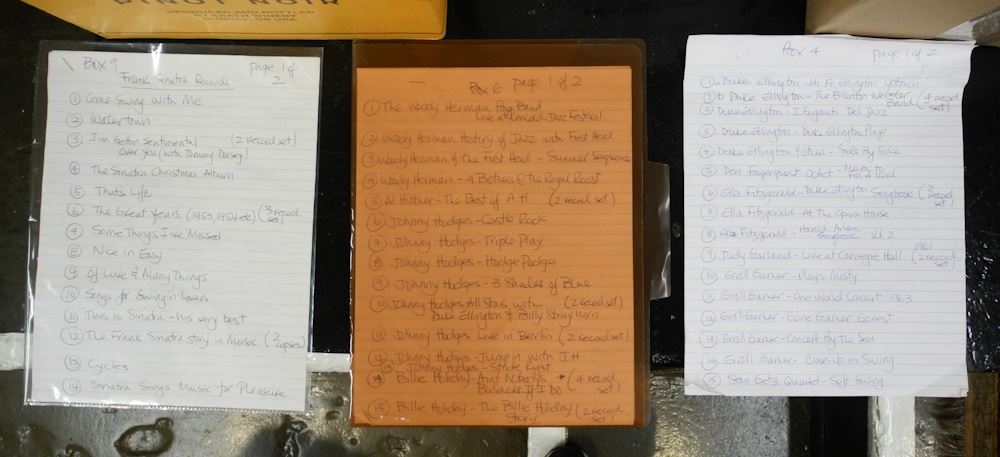 PINOT NOIR
PRODUCED AND BOTTLED
BY ERATH WINERY
DUNDEE, OR USA
Box 9
page 1 of 2
Frank Sinatra Records
1 Come Swing With Me
2 Watertown
3 I'm Gettin Sentimental (2 record set)
Over You (with Tommy Dorsey)
4 The Sinatra Christmas Album
5 That's Life
6 The Great Years (1953, 1954 etc) (3 record set)
7 Some Things I've Missed
8 Nice in Easy
9 Of Love & Many Things
10 Songs for Swingin' Lovers
11 This is Sinatra - his very best
12 The Frank Sinatra story in Music (2 copies)
13 Cycles
14 Sinatra Sings Music for Pleasure
Box 6 page 1 of 2
1 The Woody Herman Big Band
Live at Concord Jazz Festival
2 Woody Herman History of Jazz with First Herd
3 Woody Herman & the First Herd - Summer Sequence
4 Woody Herman - 4 Brothers @ the Royal Roost
5 Al Hibbler - The Best of A.H (2 record set)
6 Johnny Hodges - Castle Rock
7 Johnny Hodges - Triple Play
8 Johnny Hodges - Hodge Podge
9 Johnny Hodges - 3 Shades of Blue
10 Johnny Hodges All Stars with (2 record set)
Duke Ellington & Billy Strayhorn
11 Johnny Hodges Live in Berlin (2 record set)
12 Johnny Hodges - Jumpin with J.H
13 Johnny Hodges - Stride Right
14 Billie Holiday - Aint Nobodys (4 record set)
Business if I Do
15 Billie Holiday - The Billie Holiday Story (2 record set)
Box 4 page 1 of 2
1 a Duke Ellington - Hi Fi Ellington Uptown
1 b Duke Ellington - The Blanton Webster Band (4 record set)
2 Duke Ellington - I Giganti Del Jazz
3 Duke Ellington - Duke Ellington Plays
4 Duke Ellington - Side By Side
5 Don Octet - Music
6 Ella Fitzgerald - Duke Ellington Songbook (2 record set)
7 Ella Fitzgerald - At The Opera House
8 Ella Fitzgerald - Harold Arlen Songbook Vol. 2
9 Judy Garland - Live at Carnegie Hall 1961 (2 record set)
10 Erroll Garner - Plays Misty
11 Erroll Garner - One World Concert 1963
12 Erroll Garner - Gone Garner Gonest
13 Erroll Garner - Concert By The Sea
14 Erroll Garner - Close-up in Swing
15 Stan Getz Quartet - Soft Swing